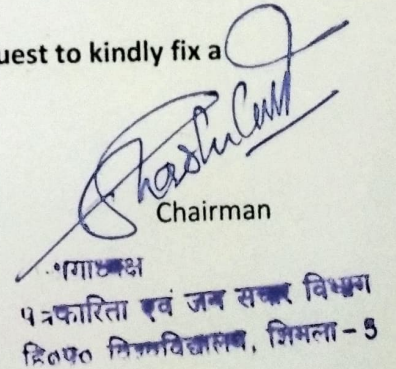 uest to kindly fix a
Chairman
पत्रकारिता एवं जन संचार विभाग
हि०प्र० विश्वविद्यालय, शिमला - 5